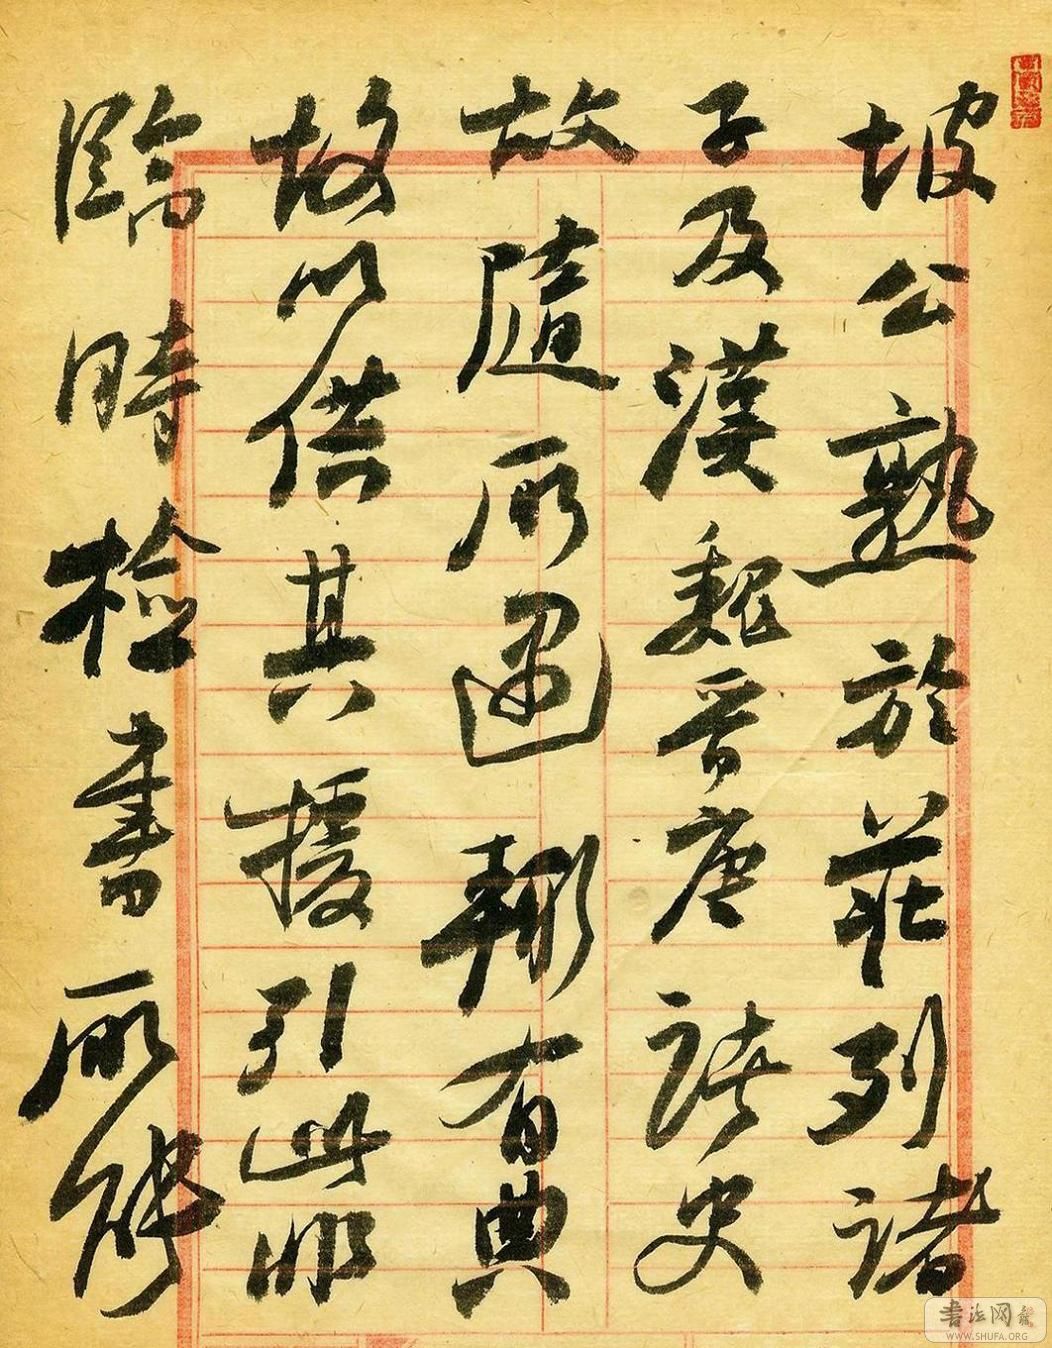 坡公熟於莊列諸
子及漢魏晉唐諸史
故隨所遇輒有典
故以供其援引此非
臨時檢書所能
書法网
WWW.SHUFA.ORG